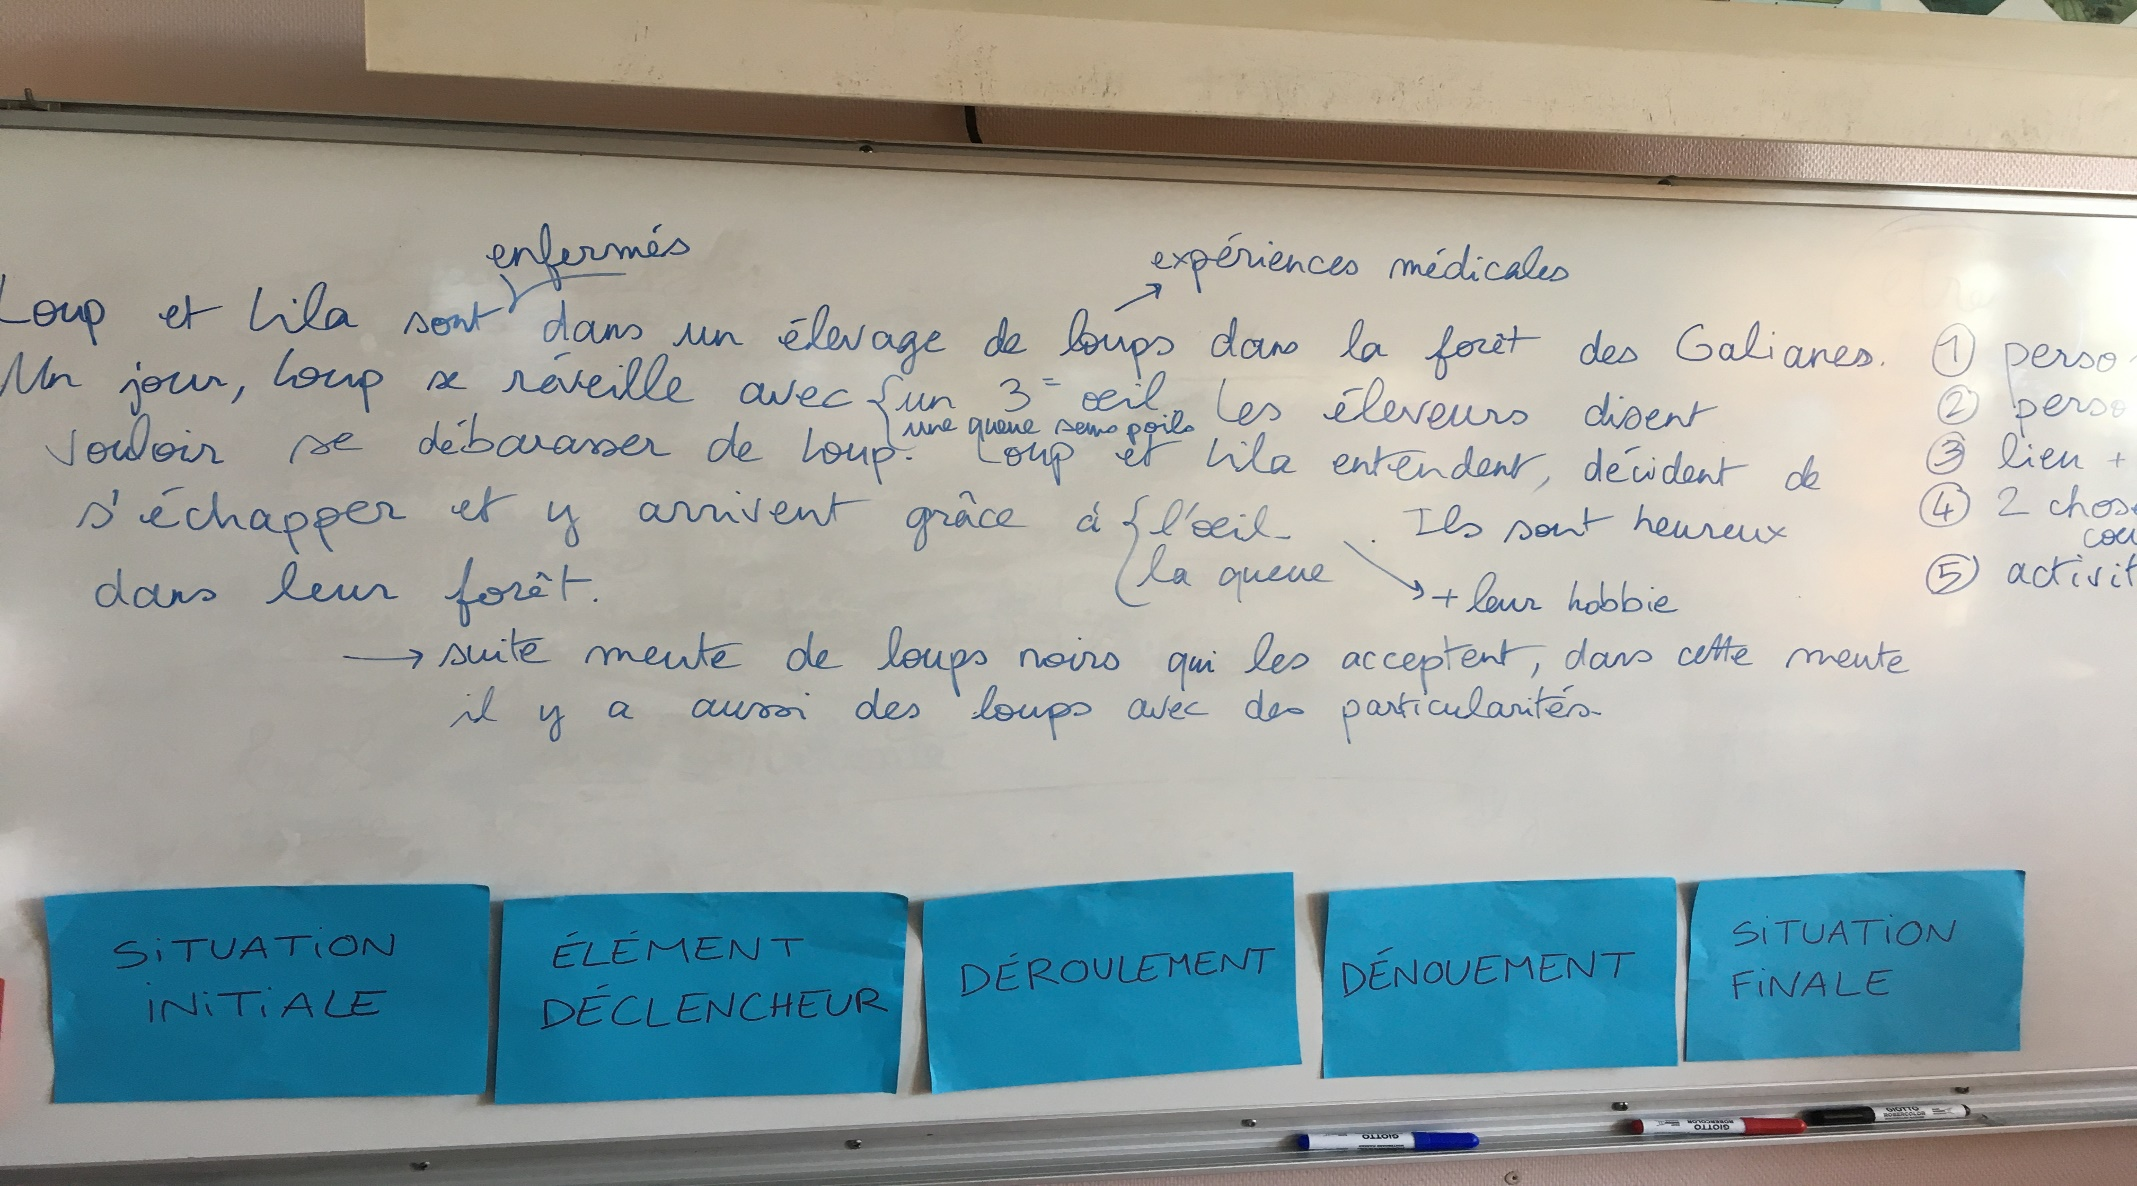 enfermés
expériences médicales
Loup et Lila sont dans un élevage de loups dans la forêt des Galianes.
Un jour, Loup se réveille avec { un 3e œil. Les éleveurs disent
une queue sans poils
vouloir se débarasser de Loup. Loup et Lila entendent, décident de
s'échapper et y arrivent grâce à { l'œil. Ils sont heureux
la queue
+ leur hobbie
dans leur forêt.
→ suite meute de loups noirs qui les acceptent, dans cette meute
il y a aussi des loups avec des particularités.
① perso
② perso
③ lieu +
④ 2 chose
cou
⑤ activit
SITUATION
INITIALE
ÉLÉMENT
DÉCLENCHEUR
DÉROULEMENT
DÉNOUEMENT
SITUATION
FINALE
GIOTTO
GIOTTO
ROBERCOLOR
GIOTTO
ROBERCOLOR